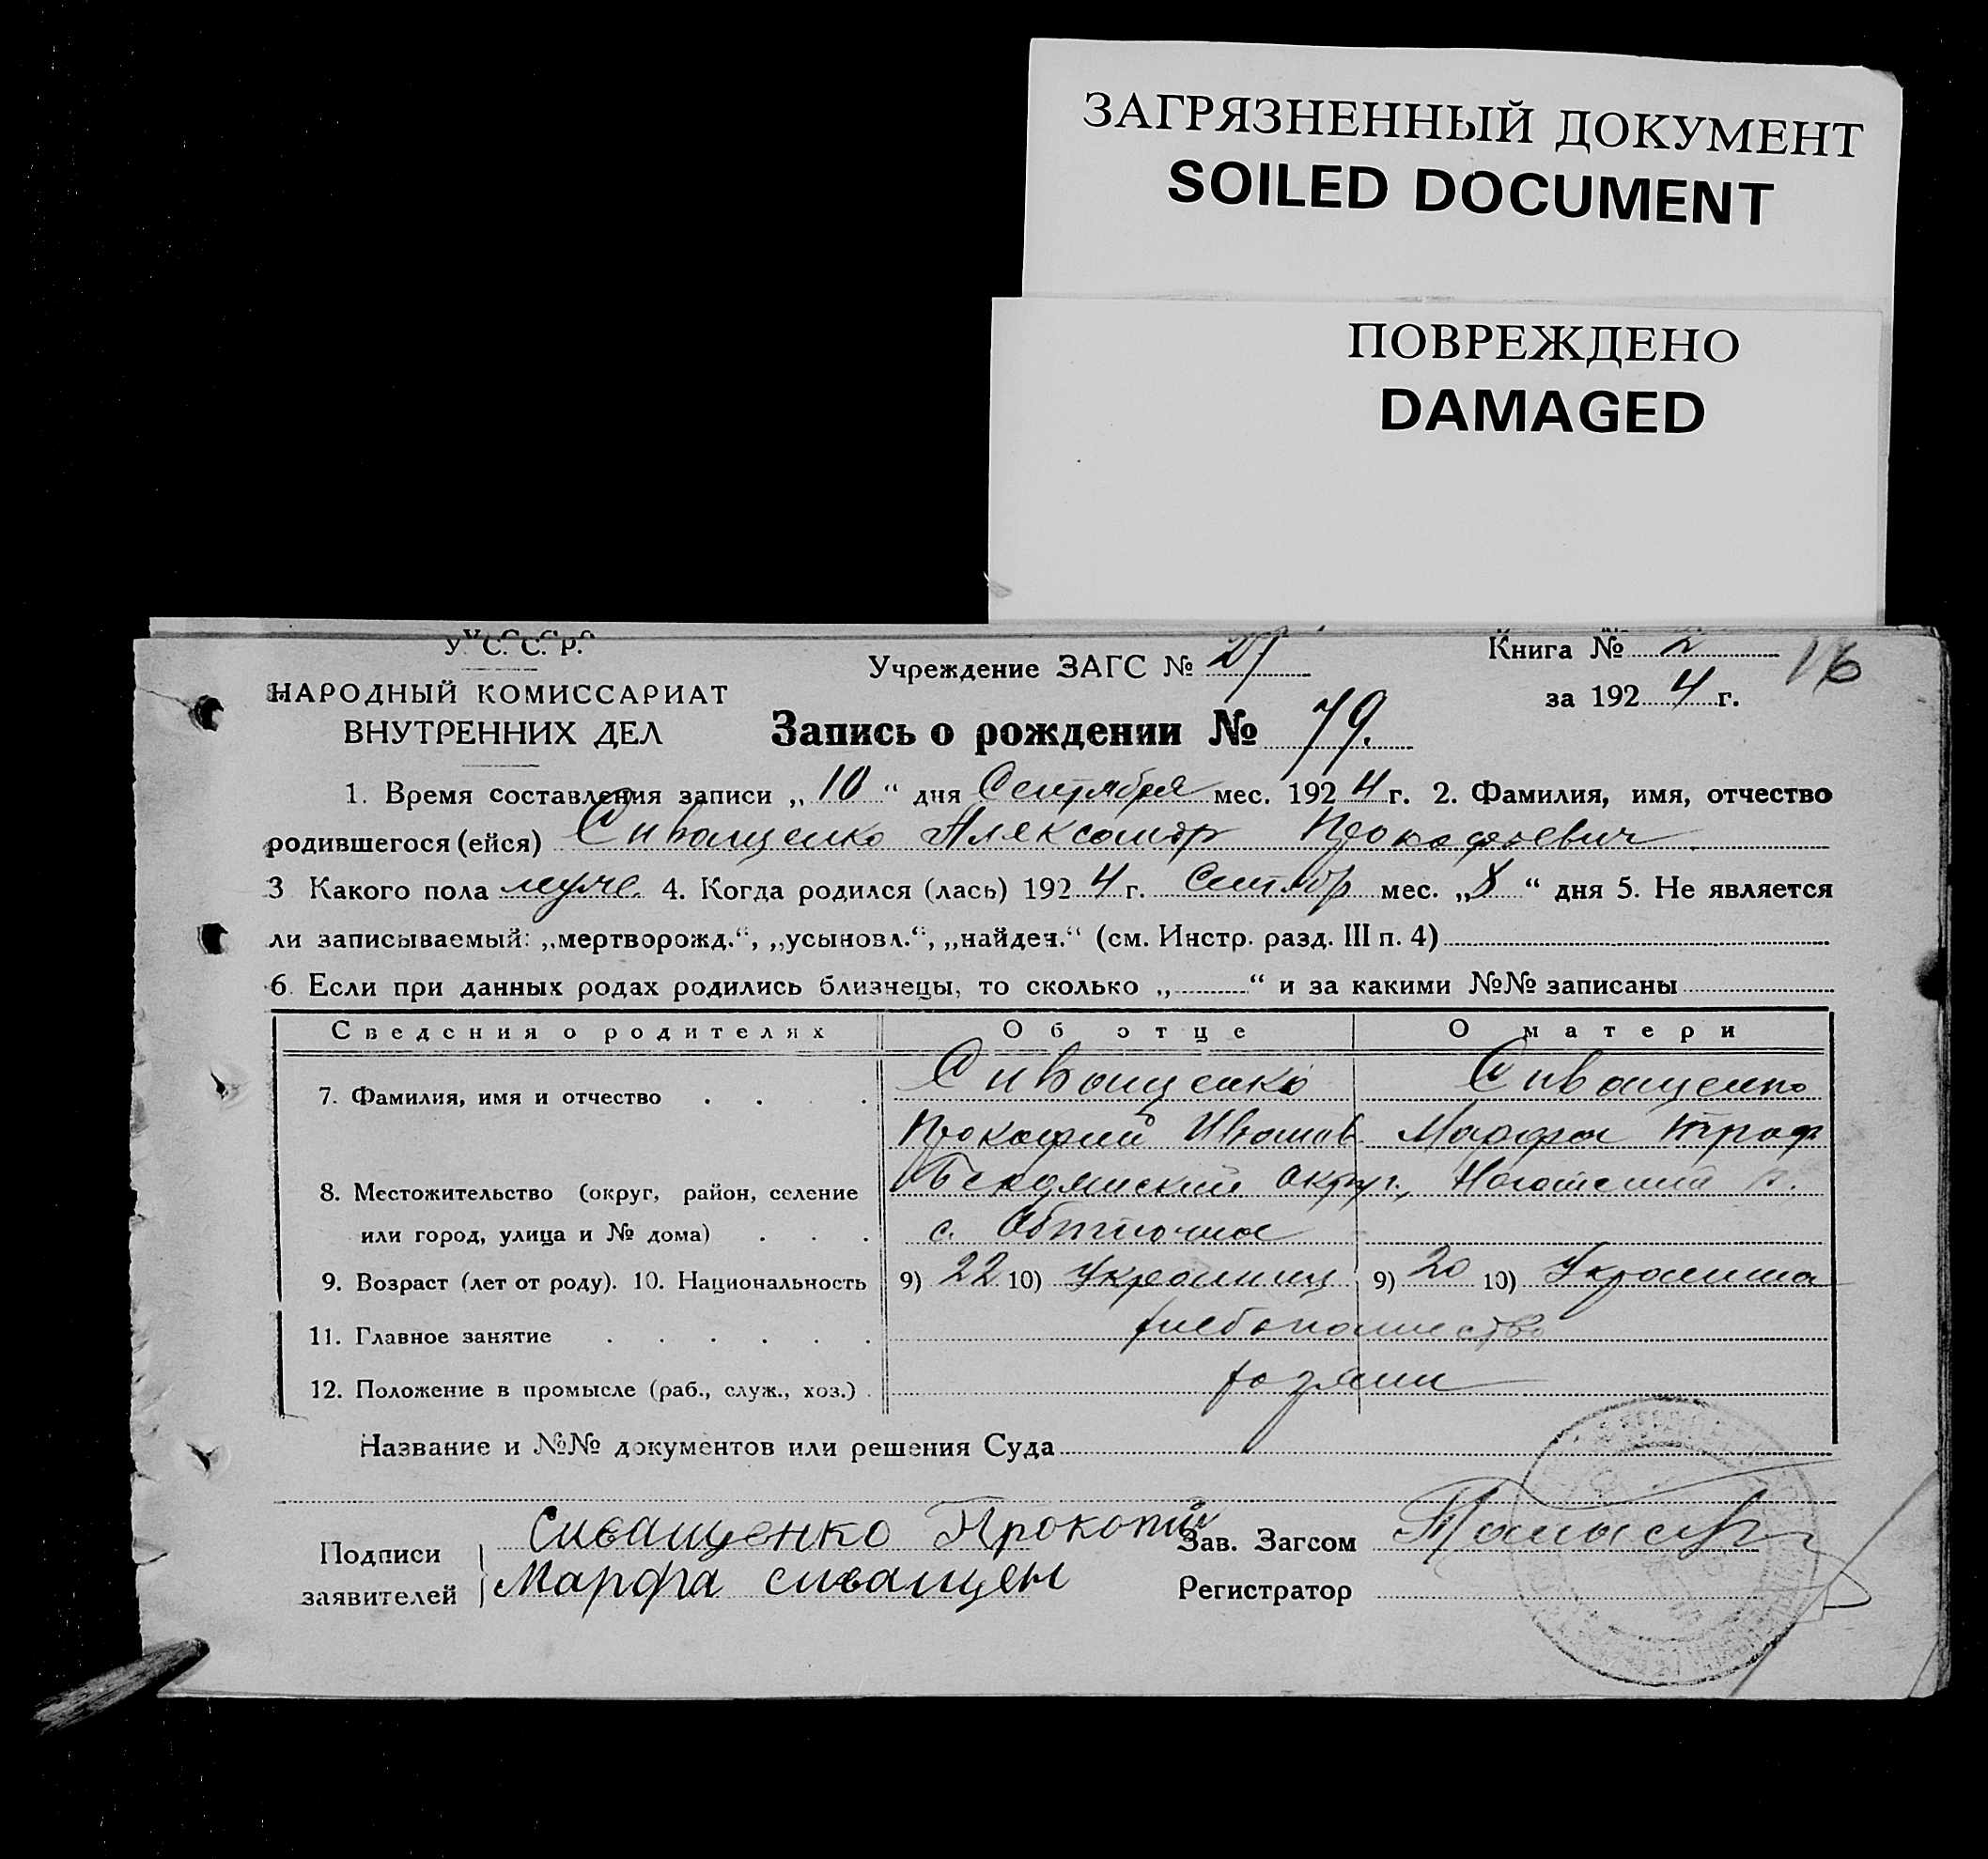 ЗАГРЯЗНЕННЫЙ ДОКУМЕНТ
SOILED DOCUMENT
ПОВРЕЖДЕНО
DAMAGED
У. С. С. Р.
НАРОДНЫЙ КОМИССАРИАТ
ВНУТРЕННИХ ДЕЛ
Учреждение ЗАГС №
Книга № 2
16
за 1924 г.
Запись о рождении № 79.
1. Время составления записи „10“ дня Сентября мес. 1924 г. 2. Фамилия, имя, отчество
родившегося (ейся) Сиващенко Александр Прокофиевич
3 Какого пола муж. 4. Когда родился (лась) 1924 г. Сентябр мес. „8“ дня 5. Не является
ли записываемый: „мертворожд.“, „усыновл.“, „найден.“ (см. Инстр. разд. III п. 4)
6. Если при данных родах родились близнецы, то сколько „ “ и за какими №№ записаны
Сведения о родителях Об отце О матери
7. Фамилия, имя и отчество Сиващенко Сиващенко
Прокофий Иванов Марфа Троф
8. Местожительство (округ, район, селение Бердянский округ, Ногайский р.
или город, улица и № дома) с. Обиточная
9. Возраст (лет от роду). 10. Национальность 9) 22 10) Украинец 9) 20 10) Украинка
11. Главное занятие хлебопашество
12. Положение в промысле (раб., служ., хоз.) хозяин
Название и №№ документов или решения Суда
Подписи заявителей
Сиващенко Прокопий
Марфа сиващен
Зав. Загсом
Регистратор